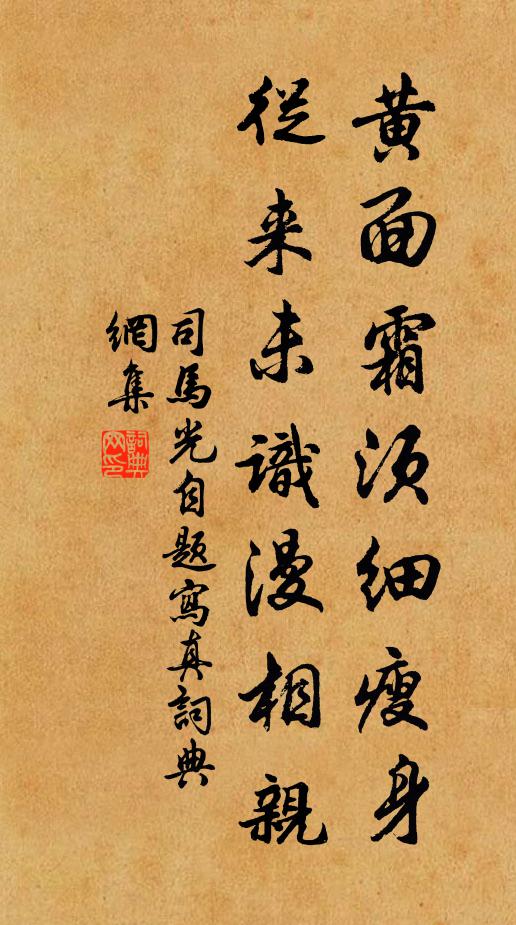 黄面霜须細瘦身
從来未識漫相親
司馬光自题寫真詞典
網集
詞典
网印